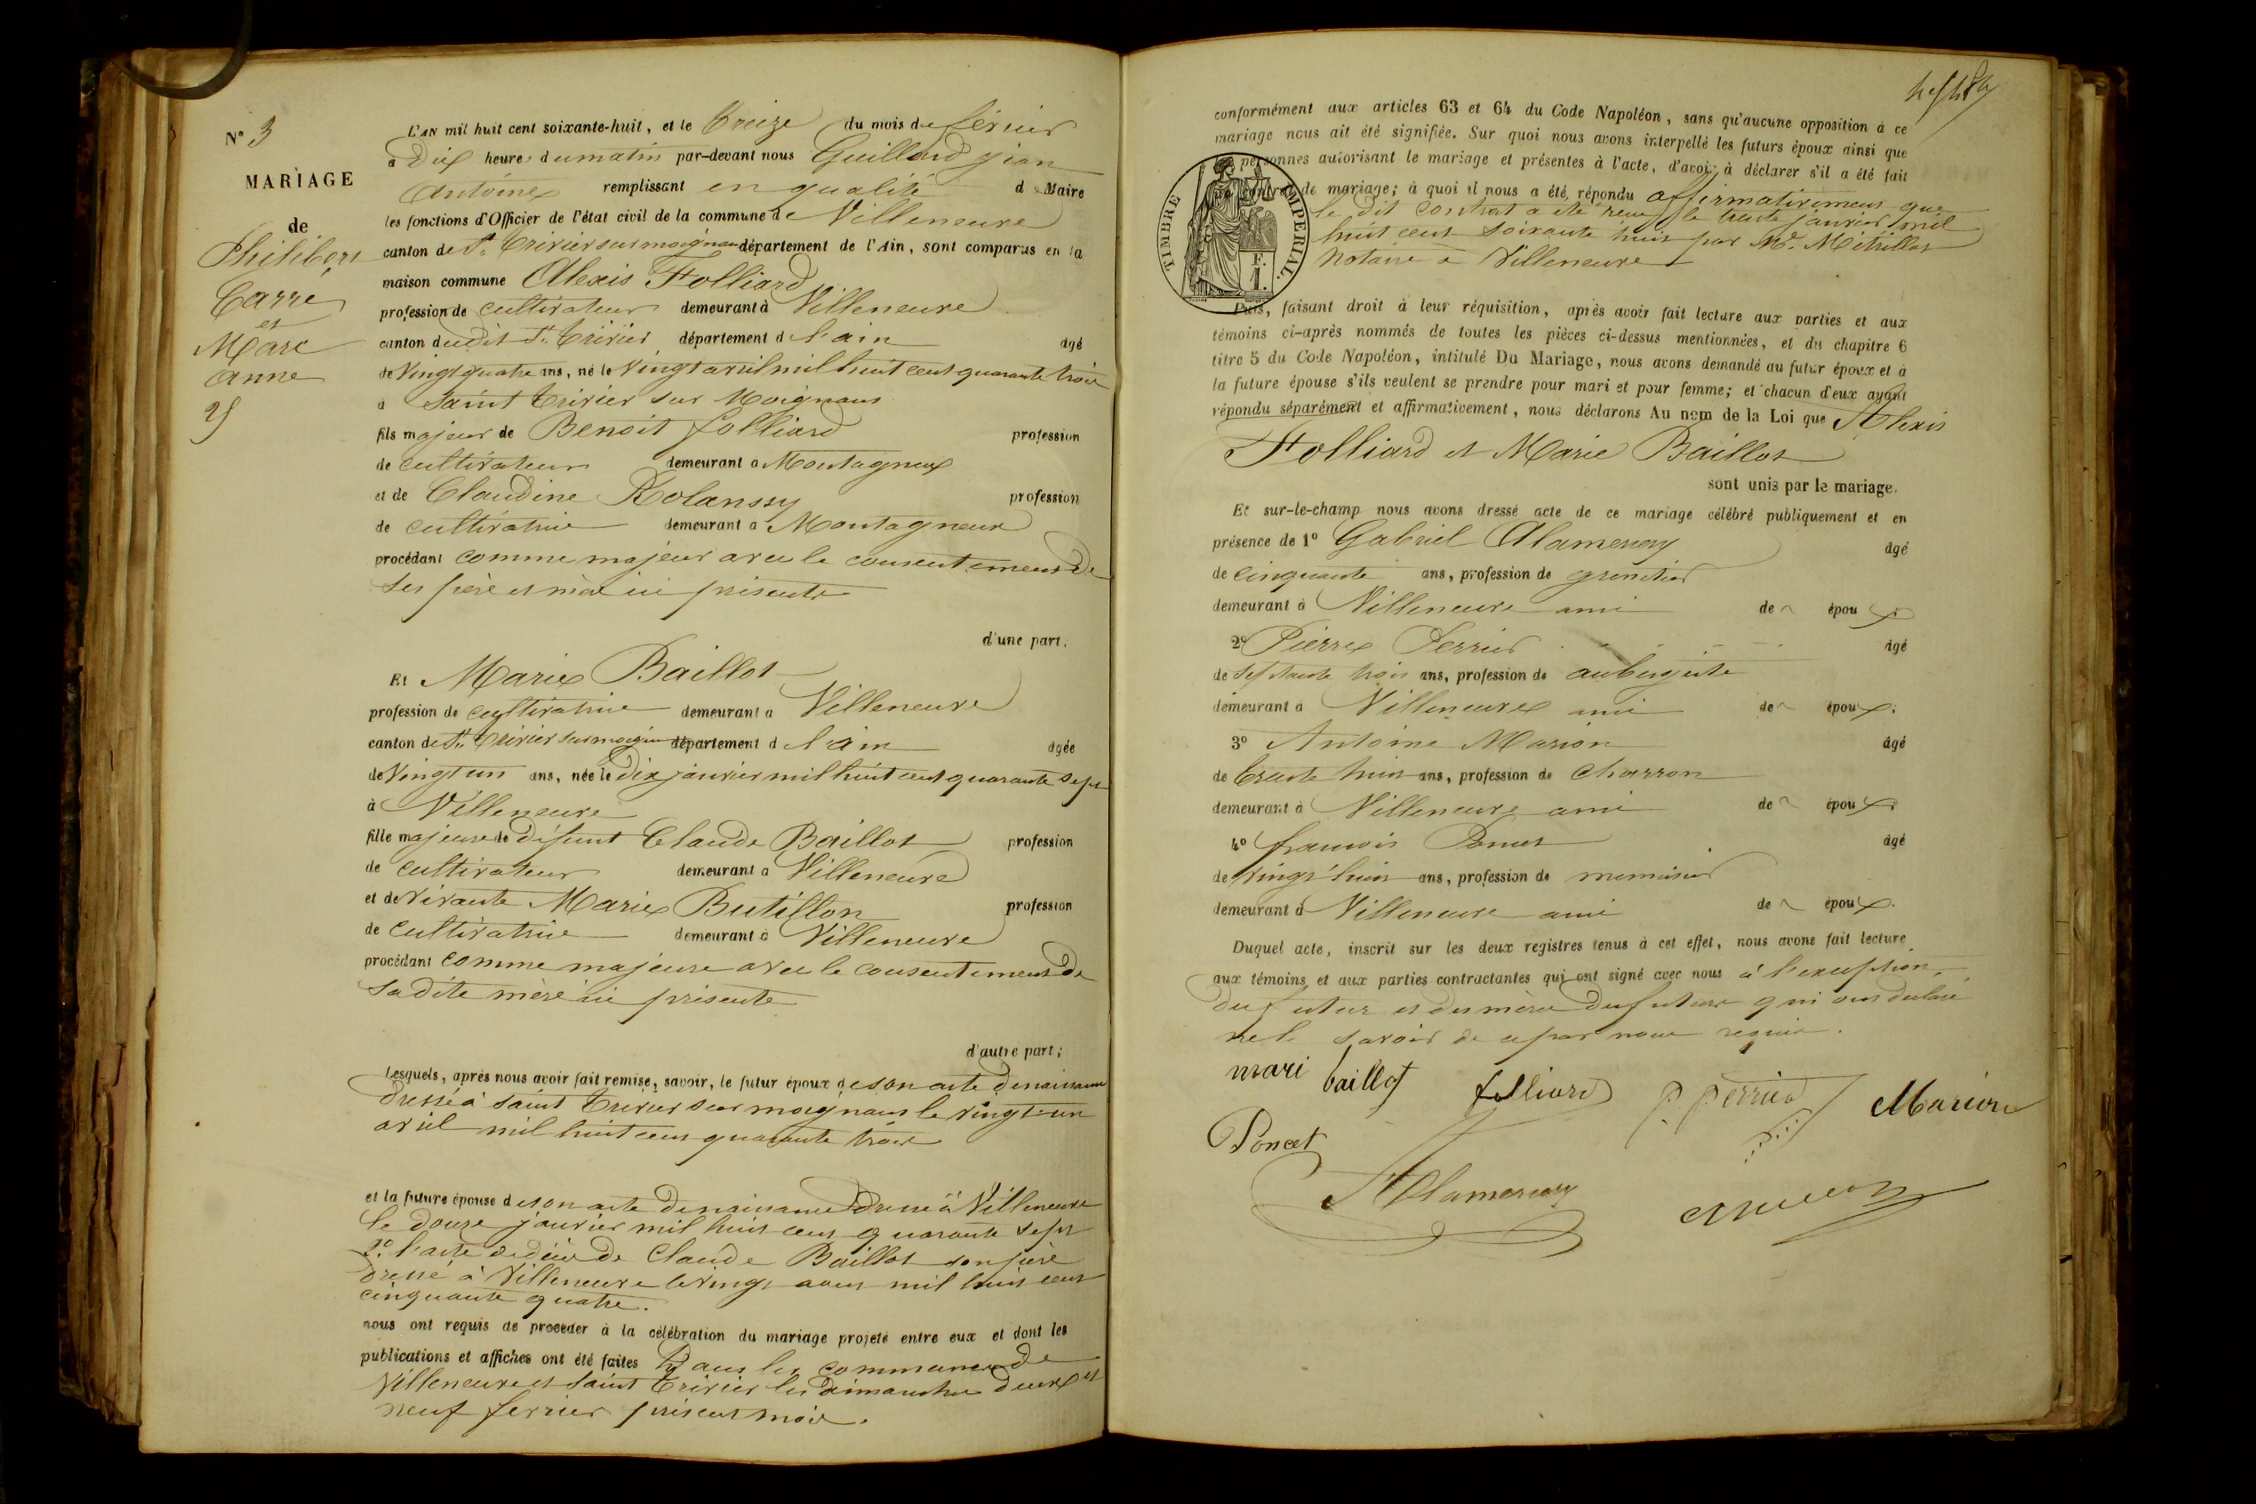 N° 3
MARIAGE
de
Philibert
Carre
et
Marc
Anne
L'AN mil huit cent soixante-huit, et le treize du mois de février
à dix heures du matin par-devant nous Guillard Jean
Antoine remplissant en qualité de Maire
les fonctions d'Officier de l'état civil de la commune de Villeneuve
canton de St. Trivier sur moignans département de l'Ain, sont comparus en la
maison commune Alexis Folliard
profession de cultivateur demeurant à Villeneuve
canton dudit St. Trivier département de l'ain âgé
de Vingt quatre ans, né le vingt avril mil huit cent quarante trois
à Saint Trivier sur Moignans
fils majeur de Benoit folliard profession
de cultivateur demeurant à Montagneux
et de Claudine profession
de cultivatrice demeurant à Montagneux
procédant comme majeur avec le consentement de
ses père et mère ici présents
d'une part.
Et Marie Baillot
profession de cultivatrice demeurant à Villeneuve
canton de St. Trivier sur moignans département de l'ain âgée
de Vingt un ans, née le dix janvier mil huit cent quarante sept
à Villeneuve
fille majeure de défunt Claude Baillot profession
de cultivateur demeurant à Villeneuve
et de vivante Marie Butillon profession
de cultivatrice demeurant à Villeneuve
procédant comme majeure avec le consentement de
sadite mère ici présente
d'autre part;
Lesquels, après nous avoir fait remise, savoir, le futur époux de son acte de naissance
dressé à saint Trivier sur moignans le vingt-un
avril mil huit cent quarante trois
et la future épouse de son acte de naissance dressé à Villeneuve
le douze janvier mil huit cent quarante sept
2° l'acte de décès de Claude Baillot son père
dressé à Villeneuve le vingt aout mil huit cent
cinquante quatre.
nous ont requis de procéder à la célébration du mariage projeté entre eux et dont les
publications et affiches ont été faites Dans les communes de
Villeneuve et saint Trivier les dimanches deux et
neuf février présent mois.
conformément aux articles 63 et 64 du Code Napoléon, sans qu'aucune opposition à ce
mariage nous ait été signifiée. Sur quoi nous avons interpellé les futurs époux ainsi que
les personnes autorisant le mariage et présentes à l'acte, d'avoir à déclarer s'il a été fait
contrat de mariage; à quoi il nous a été répondu affirmativement que
le dit contrat a été reçu le trente janvier mil
huit cent soixante huit par Me. Métrillot
notaire à Villeneuve
TIMBRE IMPERIAL.
F.
1.
Puis, faisant droit à leur réquisition, après avoir fait lecture aux parties et aux
témoins ci-après nommés de toutes les pièces ci-dessus mentionnées, et du chapitre 6
titre 5 du Code Napoléon, intitulé Du Mariage, nous avons demandé au futur époux et à
la future épouse s'ils veulent se prendre pour mari et pour femme; et chacun d'eux ayant
répondu séparément et affirmativement, nous déclarons Au nom de la Loi que Alexis
Folliard et Marie Baillot
sont unis par le mariage.
Et sur-le-champ nous avons dressé acte de ce mariage célébré publiquement et en
présence de 1° Gabriel Alamercery âgé
de cinquante ans, profession de
demeurant à Villeneuve ami de époux.
2° Pierre Perrier âgé
de septante trois ans, profession de aubergiste
demeurant à Villeneuve ami de époux.
3° Antoine Marion âgé
de trente huit ans, profession de charron
demeurant à Villeneuve ami de époux.
4° françois Poncet âgé
de vingt huit ans, profession de menuisier
demeurant à Villeneuve ami de époux.
Duquel acte, inscrit sur les deux registres tenus à cet effet, nous avons fait lecture
aux témoins et aux parties contractantes qui ont signé avec nous à l'exception
du futur et des mères des futurs qui ont déclaré
ne le savoir de ce par nous requis.
mari baillot folliard P perrier Marion
Poncet
Alamercery